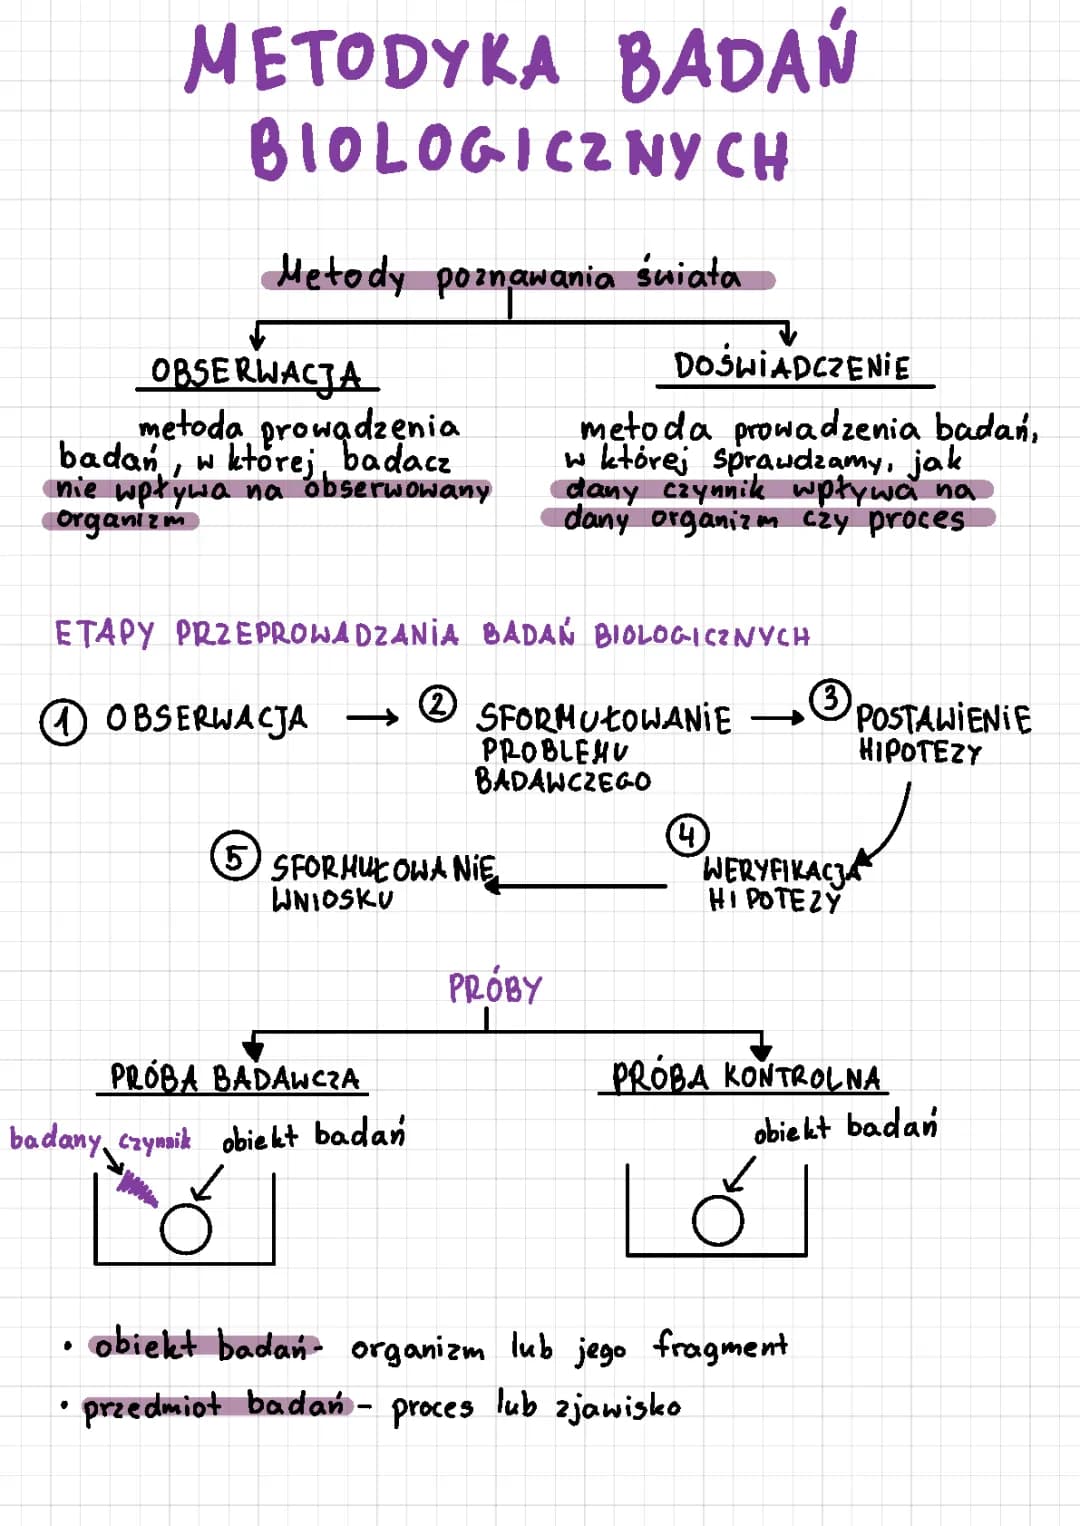 METODYKA BADAŃ
BIOLOGICZNYCH
Metody poznawania świata
OBSERWACJA
metoda prowadzenia
badań, w której badacz
nie wpływa na obserwowany
organizm
DOŚWIADCZENIE
metoda prowadzenia badań,
w której sprawdzamy, jak
dany czynnik wpływa na
dany organizm czy proces
ETAPY PRZEPROWADZANIA BADAŃ BIOLOGICZNYCH
1 OBSERWACJA
2 SFORMUŁOWANIE
PROBLEMU
BADAWCZEGO
3 POSTAWIENIE
HIPOTEZY
4 WERYFIKACJA
HIPOTEZY
5 SFORMUŁOWANIE
WNIOSKU
PRÓBY
PRÓBA BADAWCZA
badany czynnik obiekt badań
PRÓBA KONTROLNA
obiekt badań
• obiekt badań - organizm lub jego fragment
• przedmiot badań - proces lub zjawisko